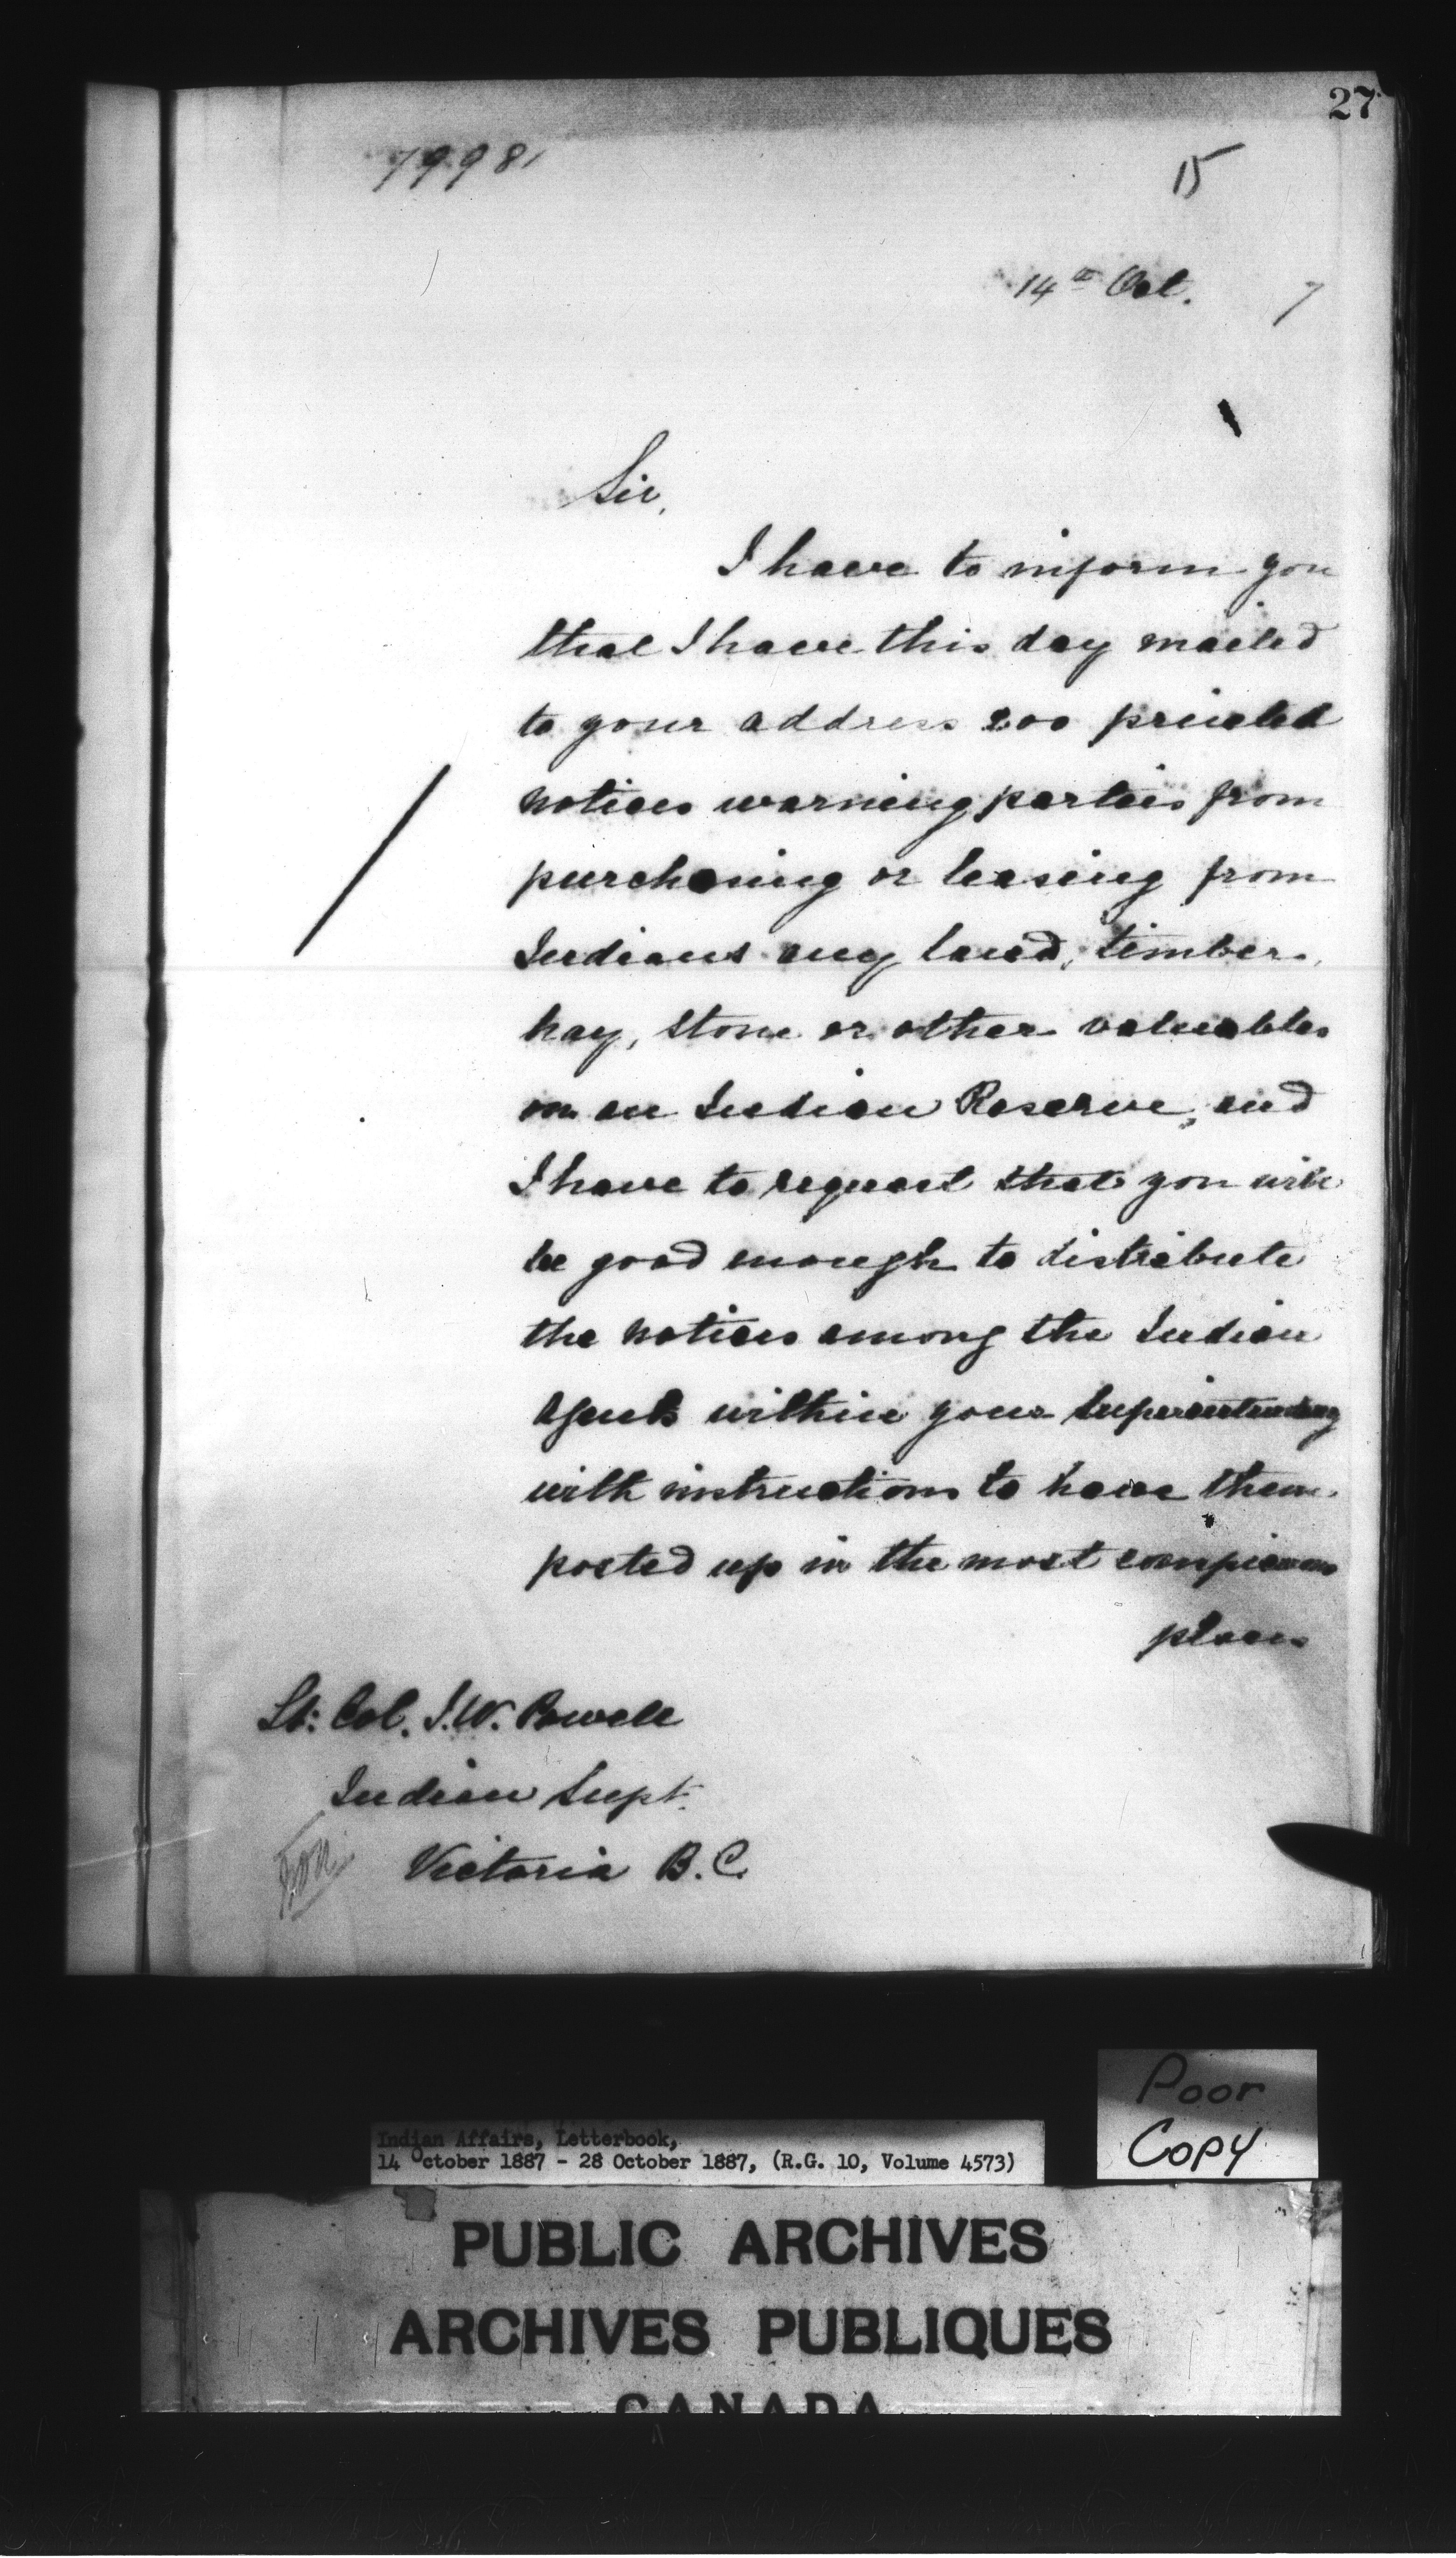 27
79981
15
14th Oct. 7
Sir,
I have to inform you
that I have this day mailed
to your address 200 printed
notices warning parties from
purchasing or leasing from
Indians any land, timber,
hay, stone or other valuables
on an Indian Reserve, and
I have to request that you will
be good enough to distribute
the notices among the Indian
Agents within your Superintendency
with instructions to have them
posted up in the most conspicuous
places
Lt: Col. I.W. Powell
Indian Supt.
Victoria B.C.
Poor
Copy
Indian Affairs, Letterbook,
14 October 1887 - 28 October 1887, (R.G. 10, Volume 4573)
PUBLIC ARCHIVES
ARCHIVES PUBLIQUES
CANADA